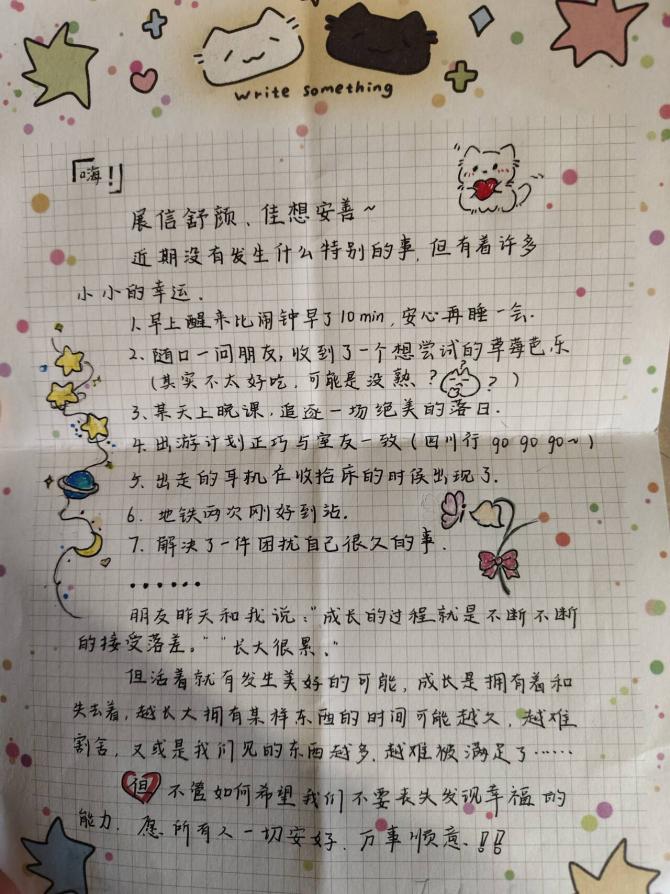 write something
「嗨!」
展信舒颜、佳想安善~
近期没有发生什么特别的事,但有着许多
小小的幸运.
1.早上醒来比闹钟早了10min,安心再睡一会.
2、随口一问朋友,收到了一个想尝试的草莓芭乐
(其实不太好吃,可能是没熟??)
3、某天上晚课,追逐一场绝美的落日.
4.出游计划正巧与室友一致(四川行 go go go~)
5.出走的耳机在收拾床的时候出现了.
6.地铁两次刚好到站.
7.解决了一件困扰自己很久的事.
••••••
朋友昨天和我说:"成长的过程就是不断不断
的接受落差。""长大很累、"
但活着就有发生美好的可能,成长是拥有着和
失去着,越长大拥有某样东西的时间可能越久,越难
割舍,又或是我们见的东西越多,越难被满足了……
但 不管如何希望我们不要丧失发现幸福的
能力.愿所有人一切安好.万事顺意.!!